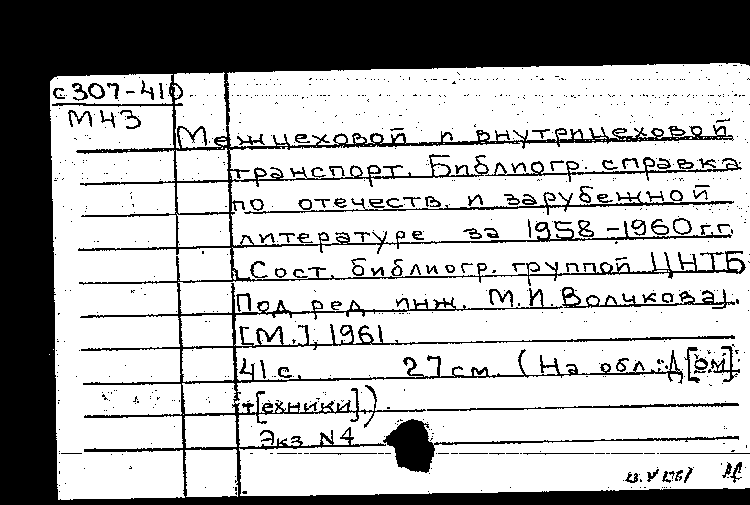 с307-410
М43
Межцеховой и внутрицеховой
транспорт. Библиогр. справка
по отечеств. и зарубежной
литературе за 1958-1960 г.г.
[Сост. библиогр. группой ЦНТБ
Под ред. инж. М.И. Волчкова].
[М.], 1961.
41 с. 27 см. (На обл.: Д[ом]
т[ехники].)
Экз N4